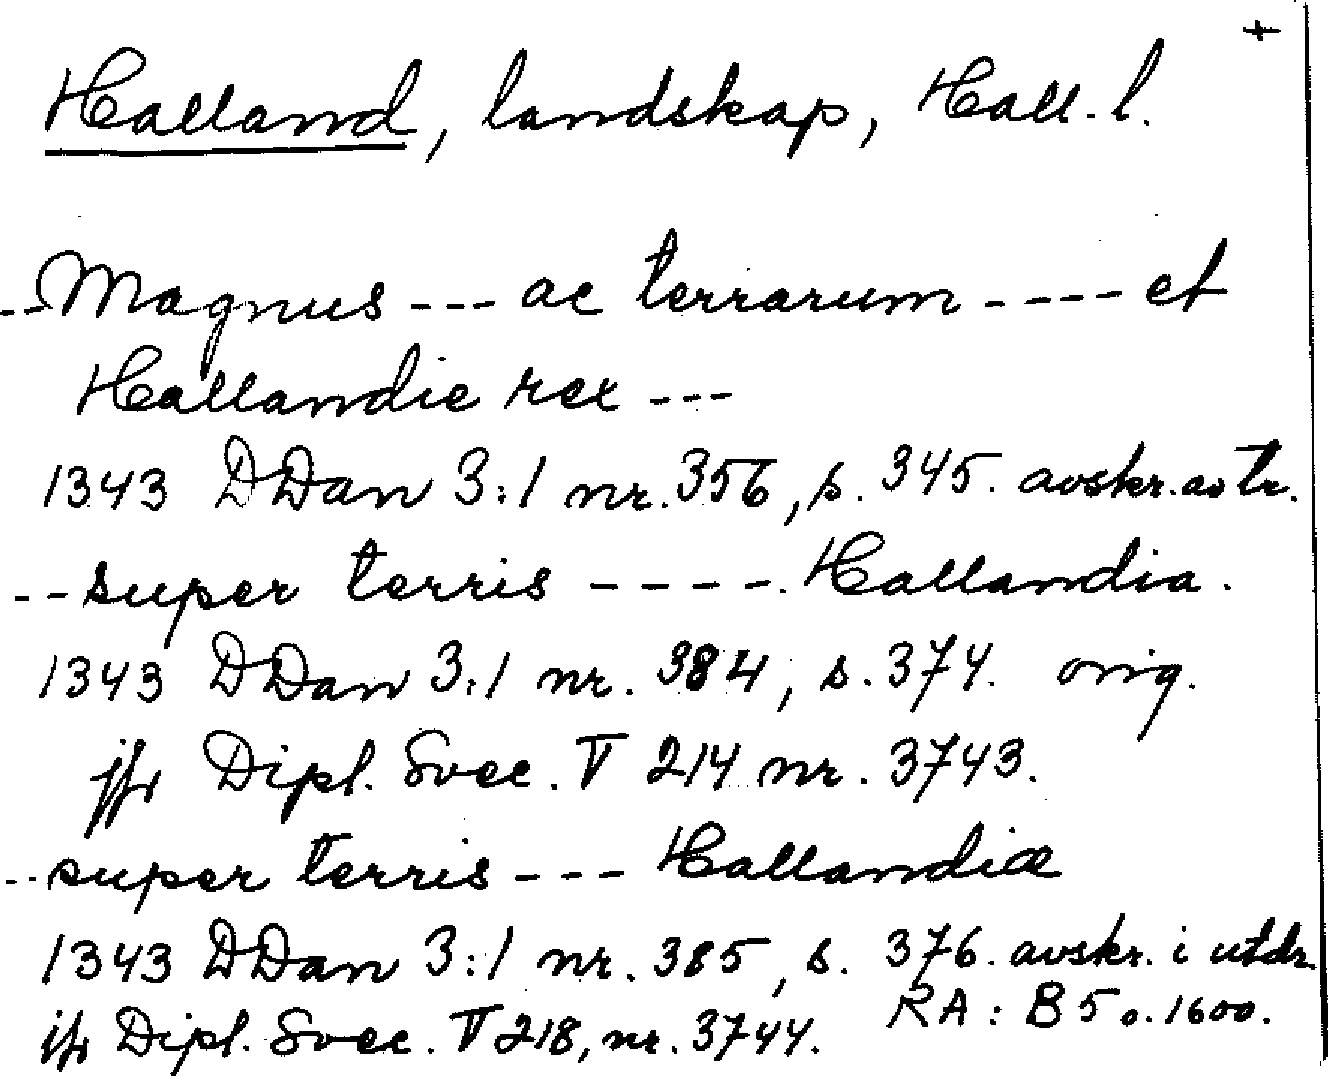 +
Halland, landskap, Hall. l.
-- Magnus --- ac terrarum ---- et
Hallandie rex ---
1343 DDan 3:1 nr. 356, s. 345. avskr. av tr.
-- super terris ---- Hallandia.
1343 DDan 3:1 nr. 384, s. 374. orig.
jfr Dipl. Svec. V 214 nr. 3743.
-- super terris --- Hallandiæ
1343 DDan 3:1 nr. 385, s. 376. avskr. i utdr.
RA: B 5 o. 1600.
jfr Dipl. Svec. V 218, nr. 3744.